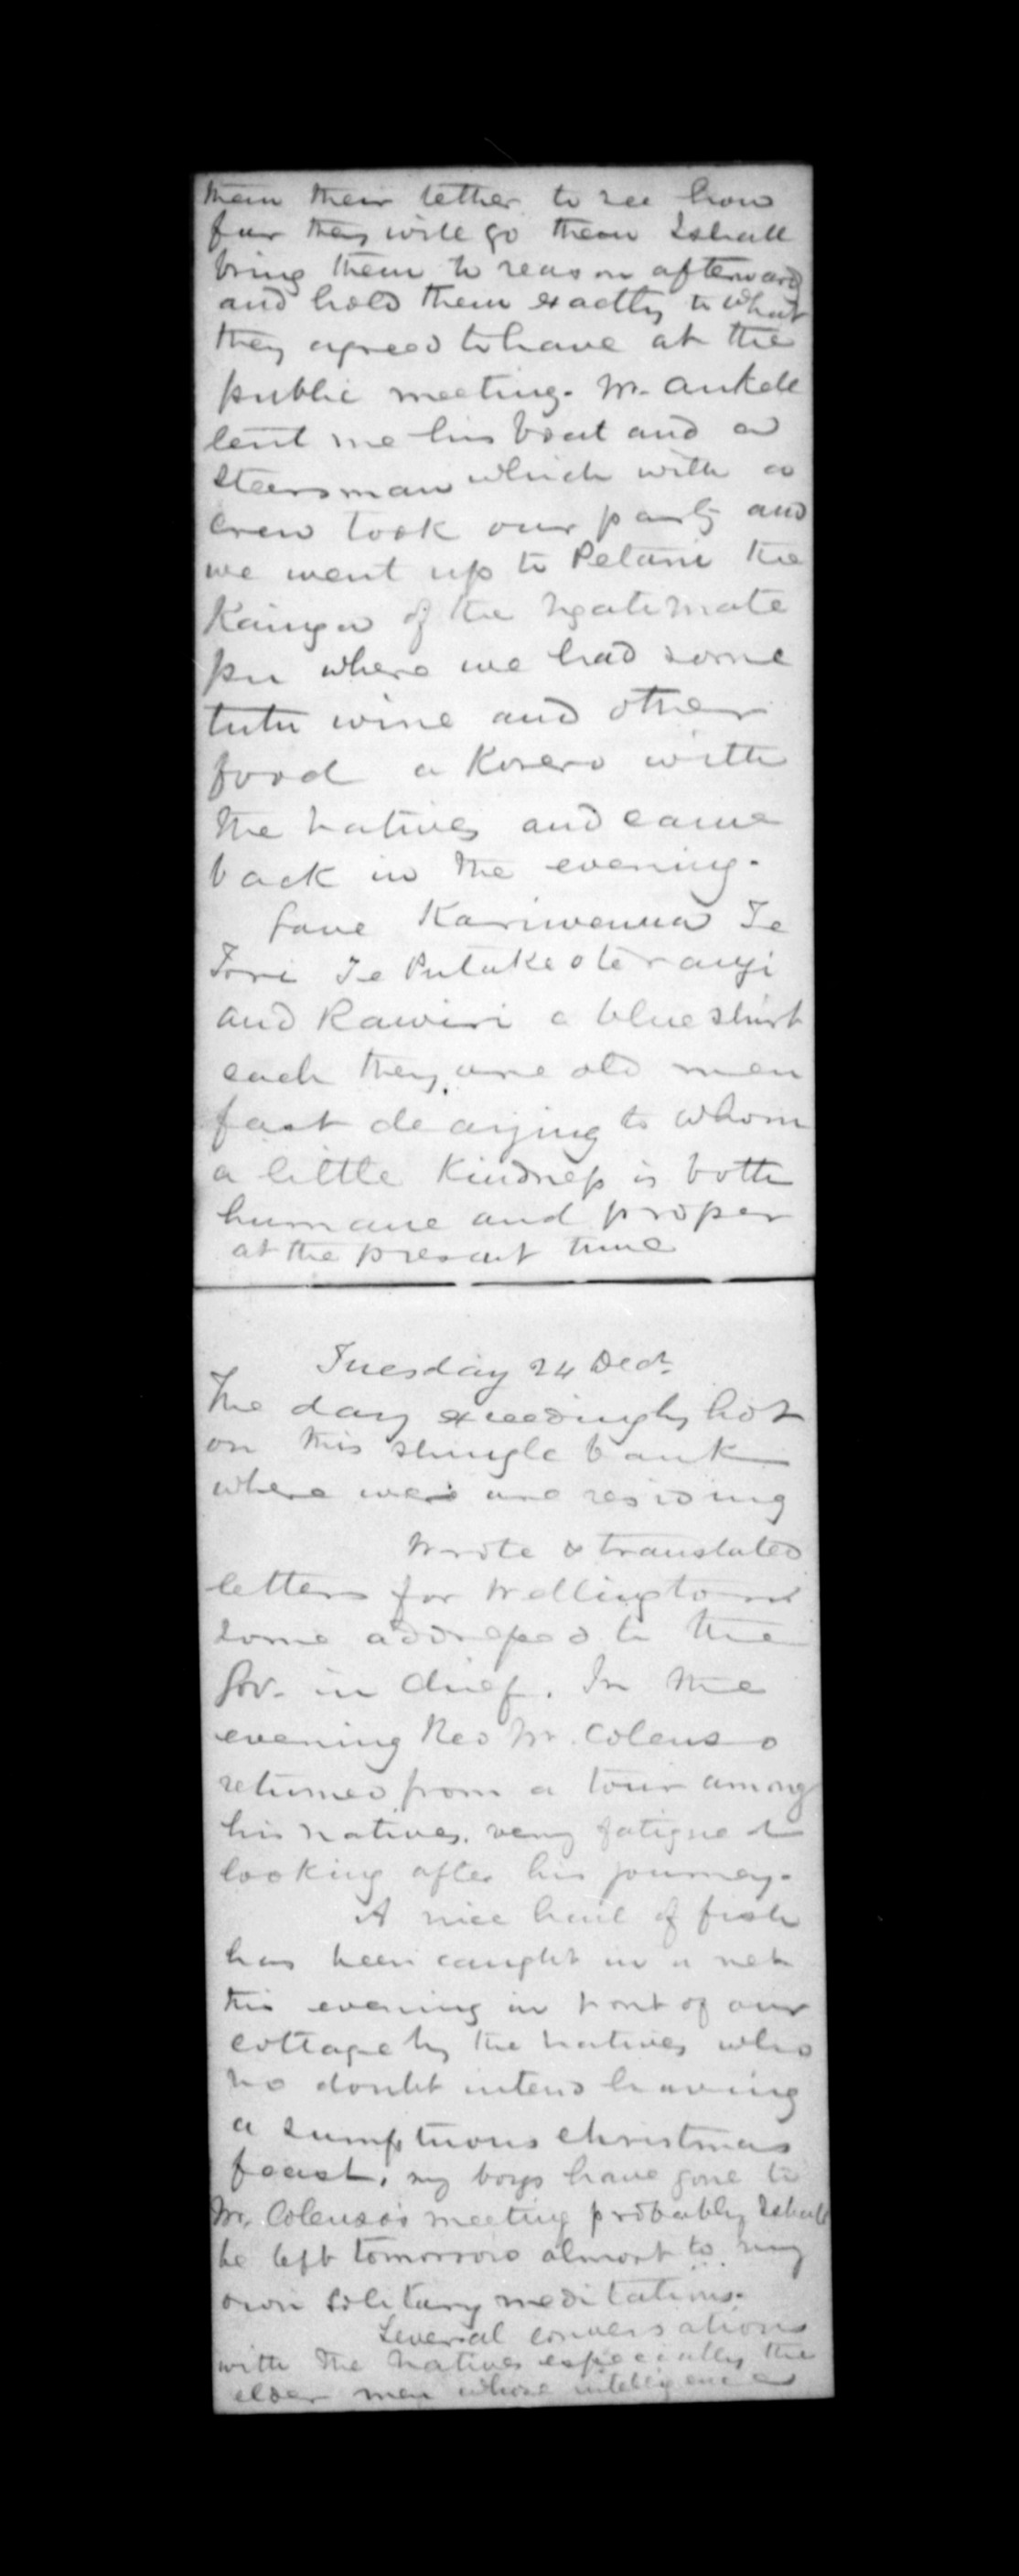 them their tether to see how
far they will go then I shall
bring them to reason afterward
and hold them exactly to what
they agreed to have at the
public meeting. Mr.
lent me his boat and a
steersman which with a
crew took our party and
we went up to Petani the
Kainga of the Ngatimate
pu where we had some
tutu wine and other
food a Korero with
the natives and came
back in the evening.
Gave Te
Tori Te
and Rawiri a blue shirt
each they are old men
fast decaying to whom
a little kindness is both
humane and proper
at the present time
Tuesday 24 Decr.
The day exceedingly hot
on this shingle bank
where we are residing
Wrote & translated
letters for Wellington
some addressed to the
Gov. in Chief. In the
evening Rev Mr. Colenso
returned from a tour among
his natives. very fatigued
looking after his journey.
A nice haul of fish
has been caught in a net
this evening in front of our
cottage by the natives who
no doubt intend having
a sumptuous christmas
feast. my boys have gone to
Mr. Colenso's meeting probably I shall
be left tomorrow almost to my
own solitary meditations.
Several conversations
with the natives especially the
elder men whose intelligence